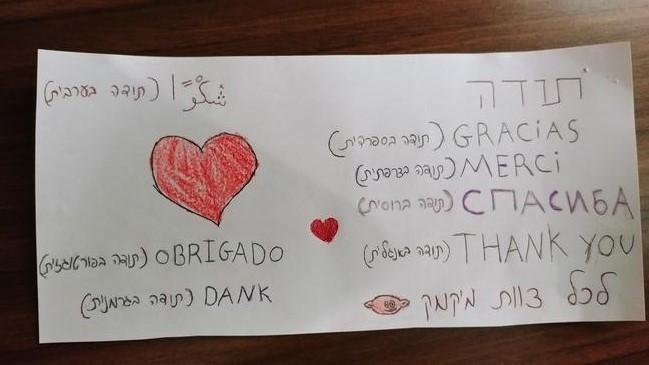 תודה
GRACiAS (תודה בספרדית)
MERCi (תודה בצרפתית)
СПАСИБА (תודה ברוסית)
THANK YOU (תודה באנגלית)
לכל צוות מיקמק
شكرًا (תודה בערבית)
OBRIGADO (תודה בפורטוגזית)
DANK (תודה בגרמנית)